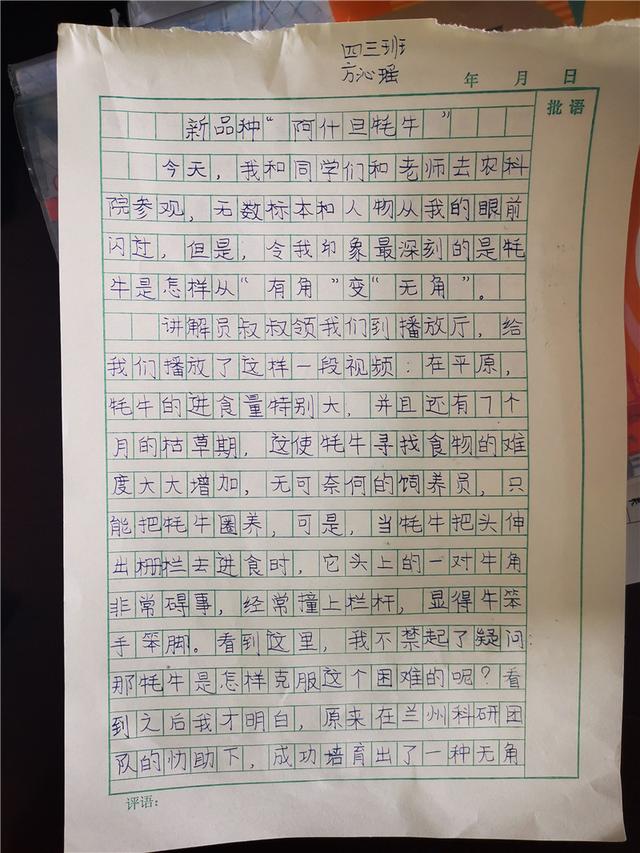 四三班
方沁瑶
年 月 日
批语
新品种“阿什旦牦牛”
今天，我和同学们和老师去农科
院参观，无数标本和人物从我的眼前
闪过，但是，令我印象最深刻的是牦
牛是怎样从“有角”变“无角”。
讲解员叔叔领我们到播放厅，给
我们播放了这样一段视频：在平原，
牦牛的进食量特别大，并且还有7个
月的枯草期，这使牦牛寻找食物的难
度大大增加，无可奈何的饲养员，只
能把牦牛圈养，可是，当牦牛把头伸
出栅栏去进食时，它头上的一对牛角
非常碍事，经常撞上栏杆，显得牛笨
手笨脚。看到这里，我不禁起了疑问：
那牦牛是怎样克服这个困难的呢？看
到之后我才明白，原来在兰州科研团
队的协助下，成功培育出了一种无角
评语：